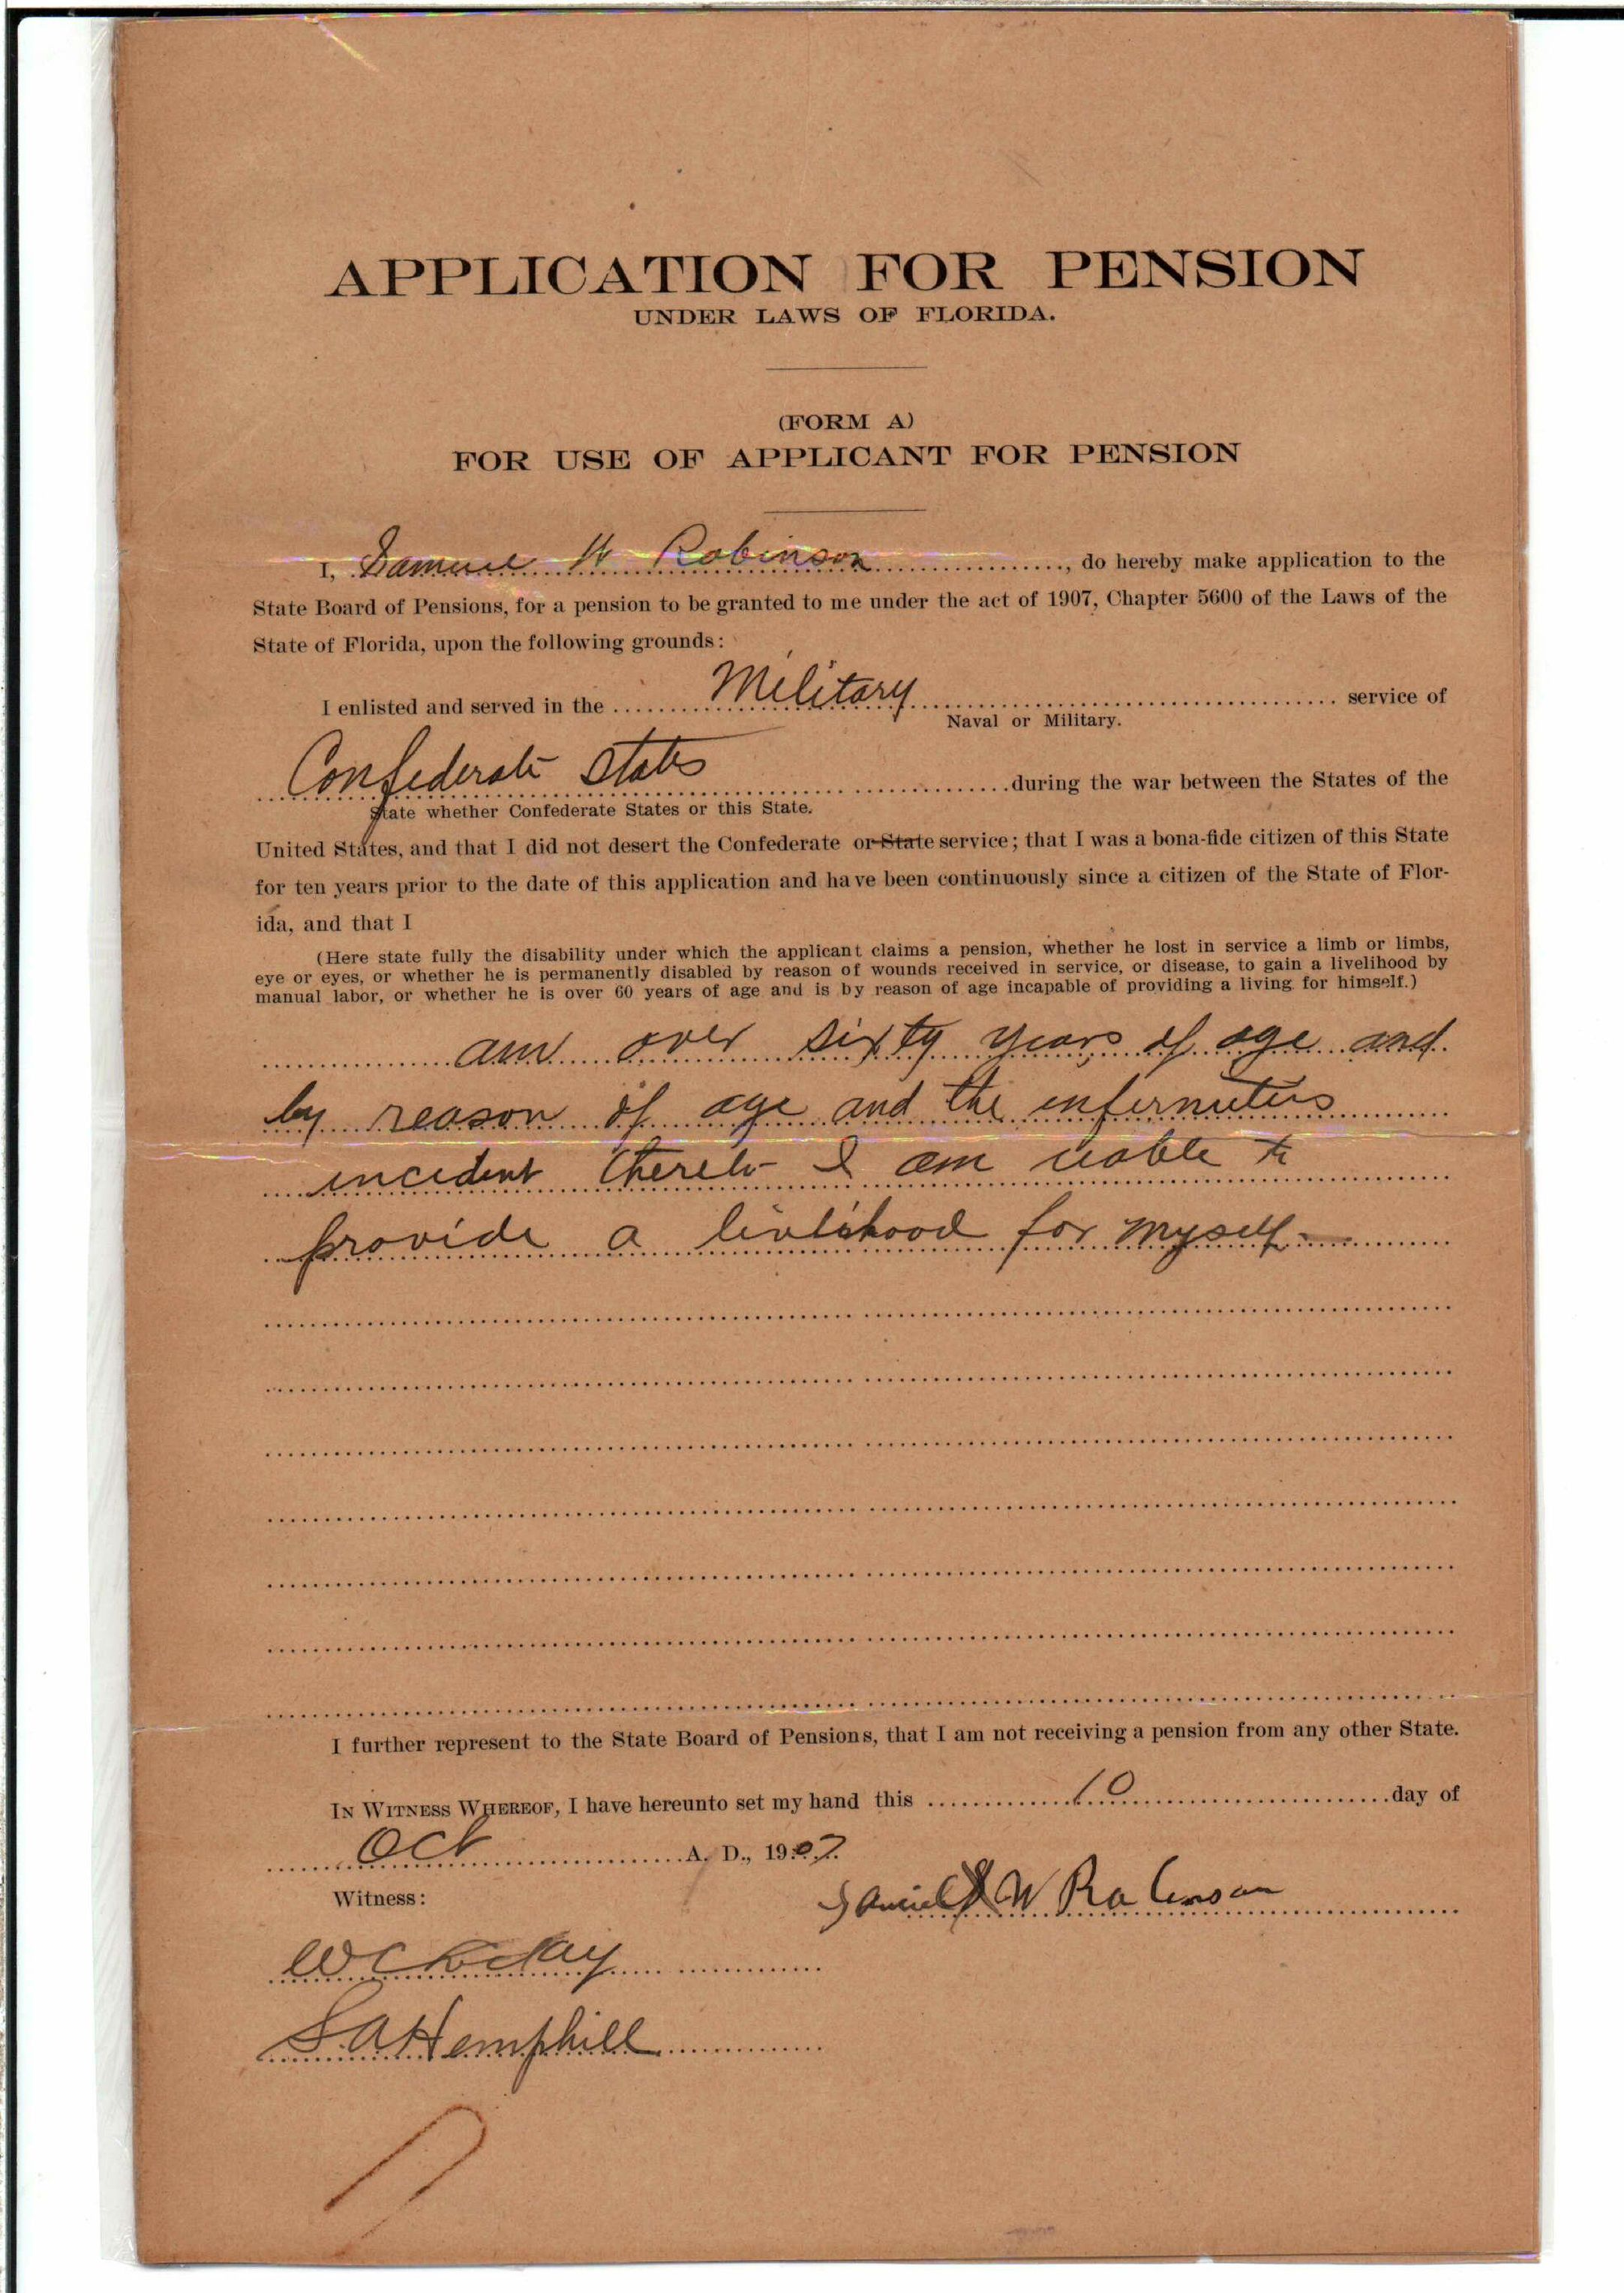 APPLICATION FOR PENSION
UNDER LAWS OF FLORIDA.
(FORM A)
FOR USE OF APPLICANT FOR PENSION
I, Samuel W Robinson, do hereby make application to the
State Board of Pensions, for a pension to be granted to me under the act of 1907, Chapter 5600 of the Laws of the
State of Florida, upon the following grounds:
I enlisted and served in the Military service of
Naval or Military.
Confederate States during the war between the States of the
State whether Confederate States or this State.
United States, and that I did not desert the Confederate or State service; that I was a bona-fide citizen of this State
for ten years prior to the date of this application and have been continuously since a citizen of the State of Flor-
ida, and that I
(Here state fully the disability under which the applicant claims a pension, whether he lost in service a limb or limbs,
eye or eyes, or whether he is permanently disabled by reason of wounds received in service, or disease, to gain a livelihood by
manual labor, or whether he is over 60 years of age and is by reason of age incapable of providing a living for himself.)
am over sixty years of age and
by reason of age and the infirmities
incident thereto I am uable to
provide a livlihood for myself-
I further represent to the State Board of Pensions, that I am not receiving a pension from any other State.
IN WITNESS WHEREOF, I have hereunto set my hand this 10 day of
Oct A. D., 1907.
Witness:
Samuel W Robinson
S. A. Hemphill